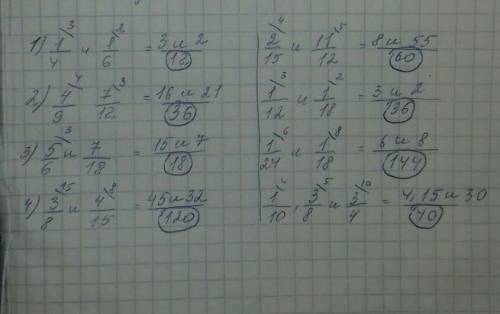 1) 1/4^3 и 8/6^2 = 3 и 2/12
2) 4/9^4 7/12^3 = 16 и 21/36
3) 5/6^3 и 7/18 = 15 и 7/18
4) 3/8^15 и 4/15^8 = 45 и 32/120
2/15^4 и 11/12^5 = 8 и 55/60
1/12^3 и 1/18^2 = 3 и 2/36
1/24^6 и 1/18^8 = 6 и 8/144
1/10^4, 3/8^5 и 3/4^10 = 4, 15 и 30/40